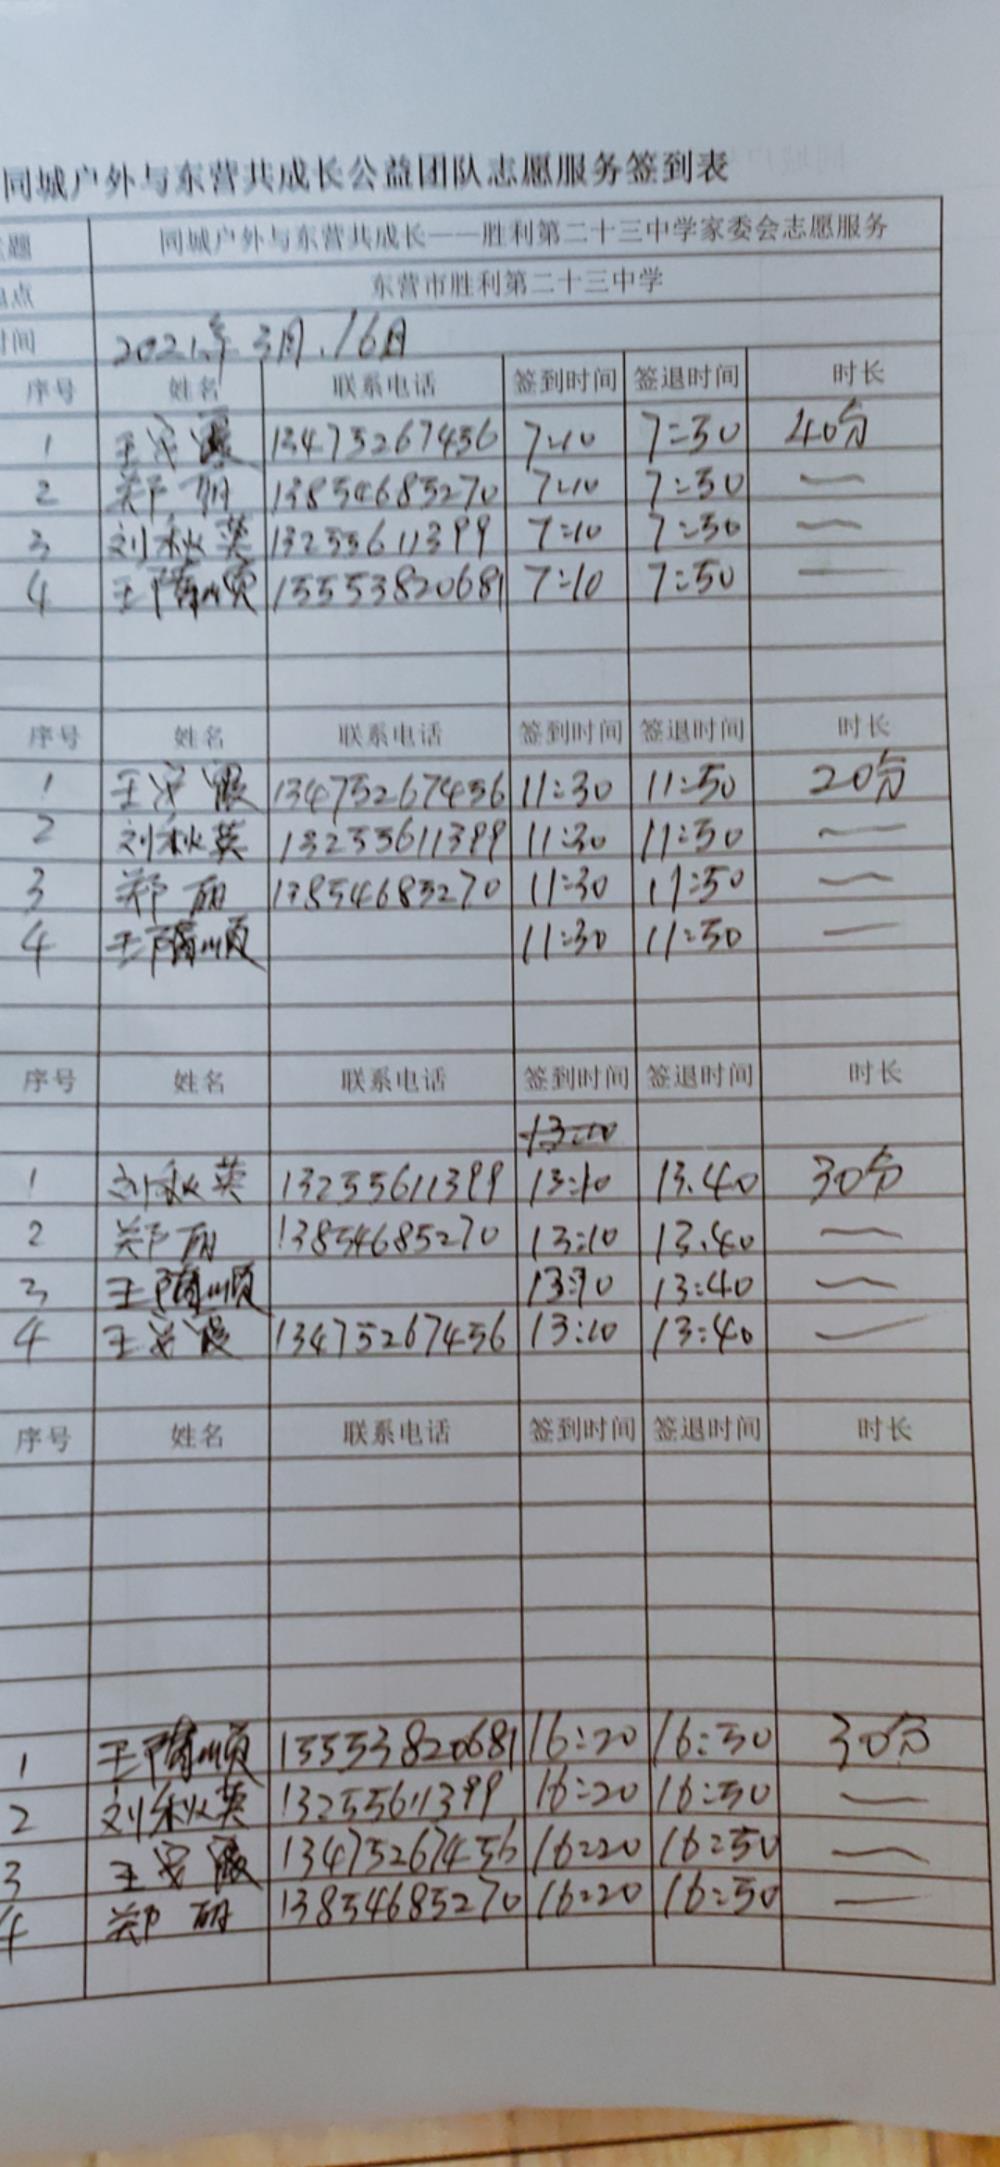 同城户外与东营共成长公益团队志愿服务签到表
题 同城户外与东营共成长——胜利第二十三中学家委会志愿服务
点 东营市胜利第二十三中学
时间 2021年3月.16日
序号 姓名 联系电话 签到时间 签退时间 时长
1 王安霞 13475267456 7:10 7:50 40分
2 郑丽 13854685270 7:10 7:50 —
3 刘秋英 13255611399 7:10 7:50 —
4 王 顺 15553820681 7:10 7:50 —
序号 姓名 联系电话 签到时间 签退时间 时长
1 王安霞 13475267456 11:30 11:50 20分
2 刘秋英 13255611399 11:30 11:50 —
3 郑丽 13854685270 11:30 11:50 —
4 王 顺 11:30 11:50 —
序号 姓名 联系电话 签到时间 签退时间 时长
1 刘秋英 13255611399 13:10 13.40 30分
2 郑丽 13854685270 13:10 13.40 —
3 王 顺 13:10 13:40 —
4 王安霞 13475267456 13:10 13:40 —
序号 姓名 联系电话 签到时间 签退时间 时长
1 王 顺 15553820681 16:20 16:50 30分
2 刘秋英 13255611399 16:20 16:50 —
3 王安霞 13475267456 16:20 16:50 —
4 郑丽 13854685270 16:20 16:50 —